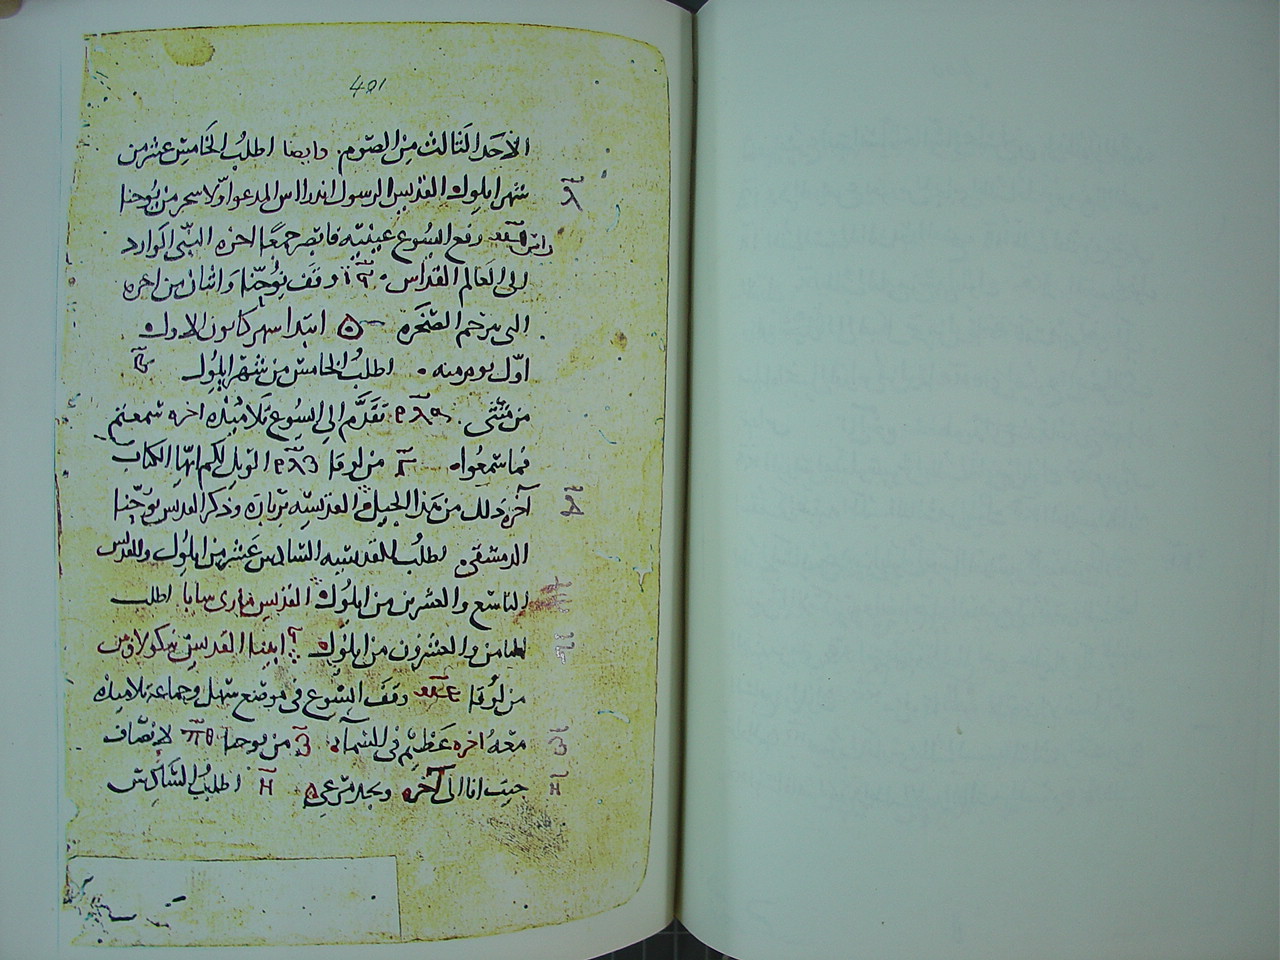 401
الأحد الثالث من الصوم. وايضا اطلب الخامس عشر من
λ̅
شهر ايلول القديس الرسول اندراس المدعو اولا سحر من يوحنا
رفع اليسوع عينيه فابصر جمعًا اخره النبي الوارد
الى العالم القداس وقف يوحنا واثنان من
الى يترجم الصخره ابتدا شهر كانون الاول
اول يوم منه اطلب الخامس من شهر ايلول
من متى تقدم الى اليسوع تلاميذه اخره سمعتم
فما سمعوا Γ̅ من لوقا الويل لكم ايها الكتاب
آخره ذلك من هذا الجبل القديسه بربارة وذكر القديس يوحنا
الدمشقي اطلب للقديسه السادس عشر من ايلول وللقديس
التاسع والعشرين من ايلول القديس ماري سابا اطلب
الثامن والعشرون من ايلول ابينا القديس نيكولاوس
من لوقا وقف اليسوع في موضع سهل وجماعة تلاميذه
معه اخره عظيم في السماء من يوحنا πθ لانصاف
جيت انا الى آخره ويجد مرعى H̅ اطلب السادس
H̅